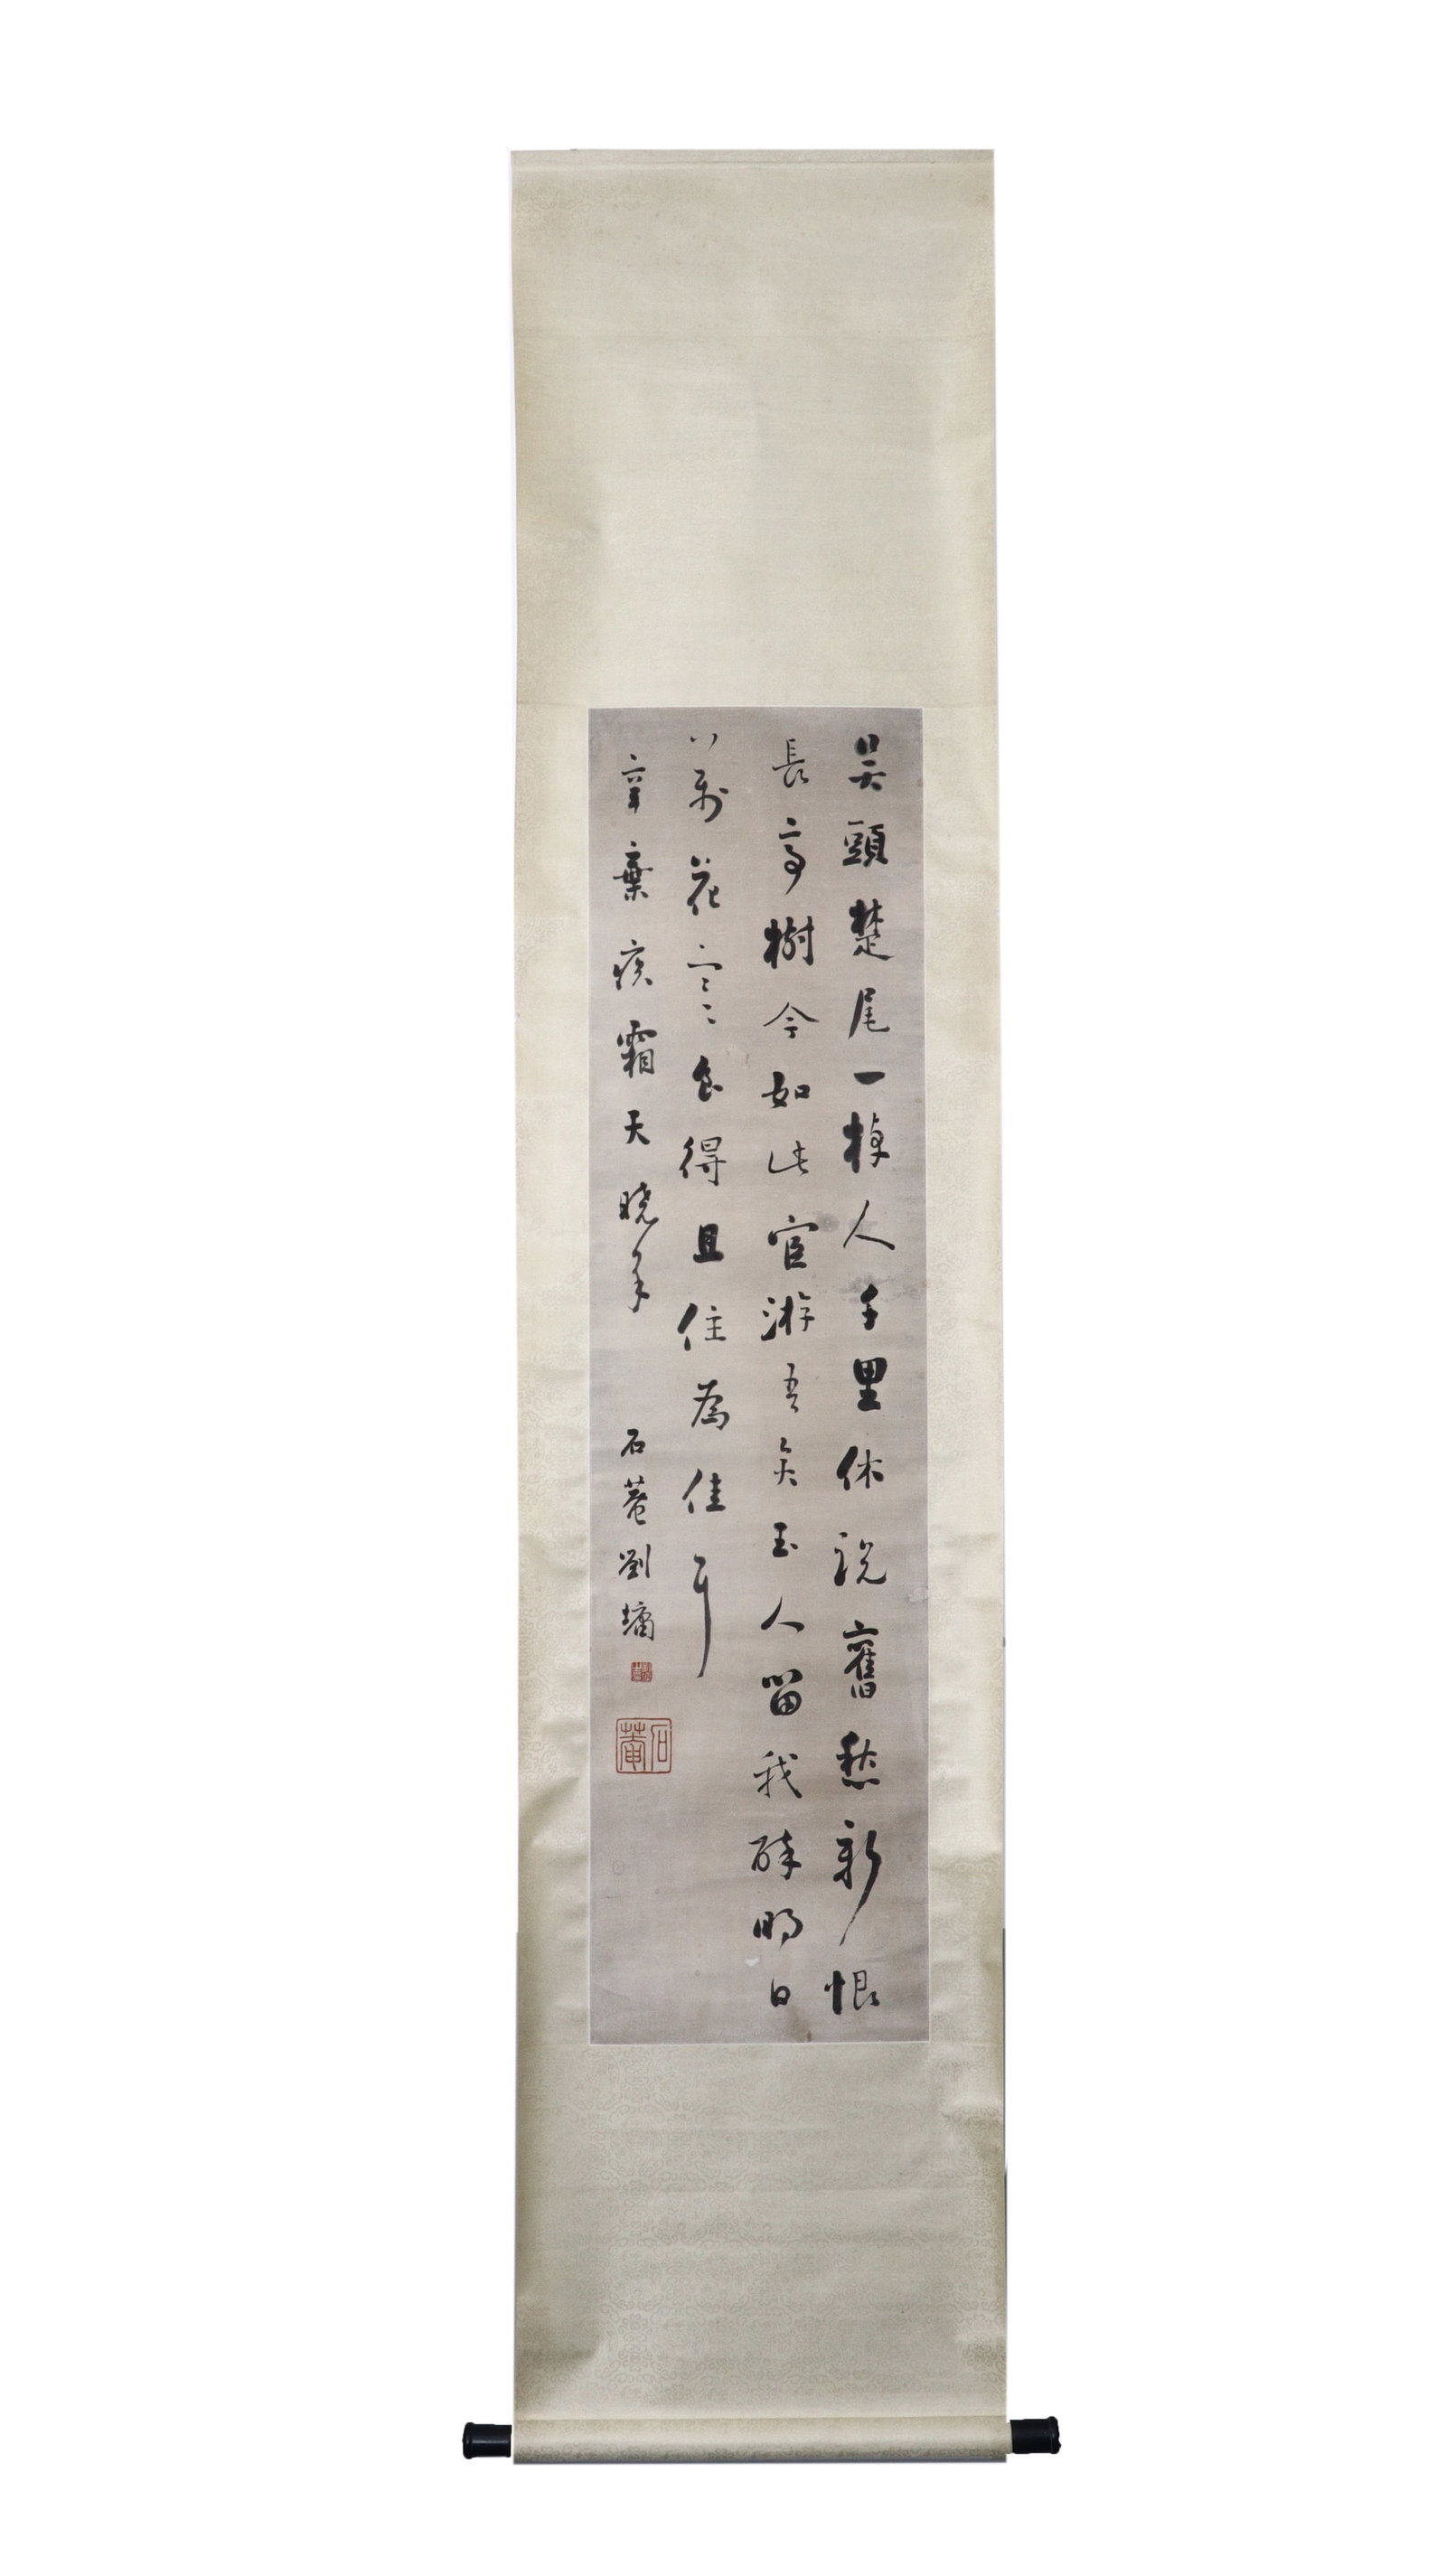 吳頭楚尾一棹人千里休說舊愁新恨
長亭樹今如此宦游吾矣玉人留我醉明日
萬花寒食得且住為佳耳
辛棄疾霜天曉角 石菴劉墉
石菴